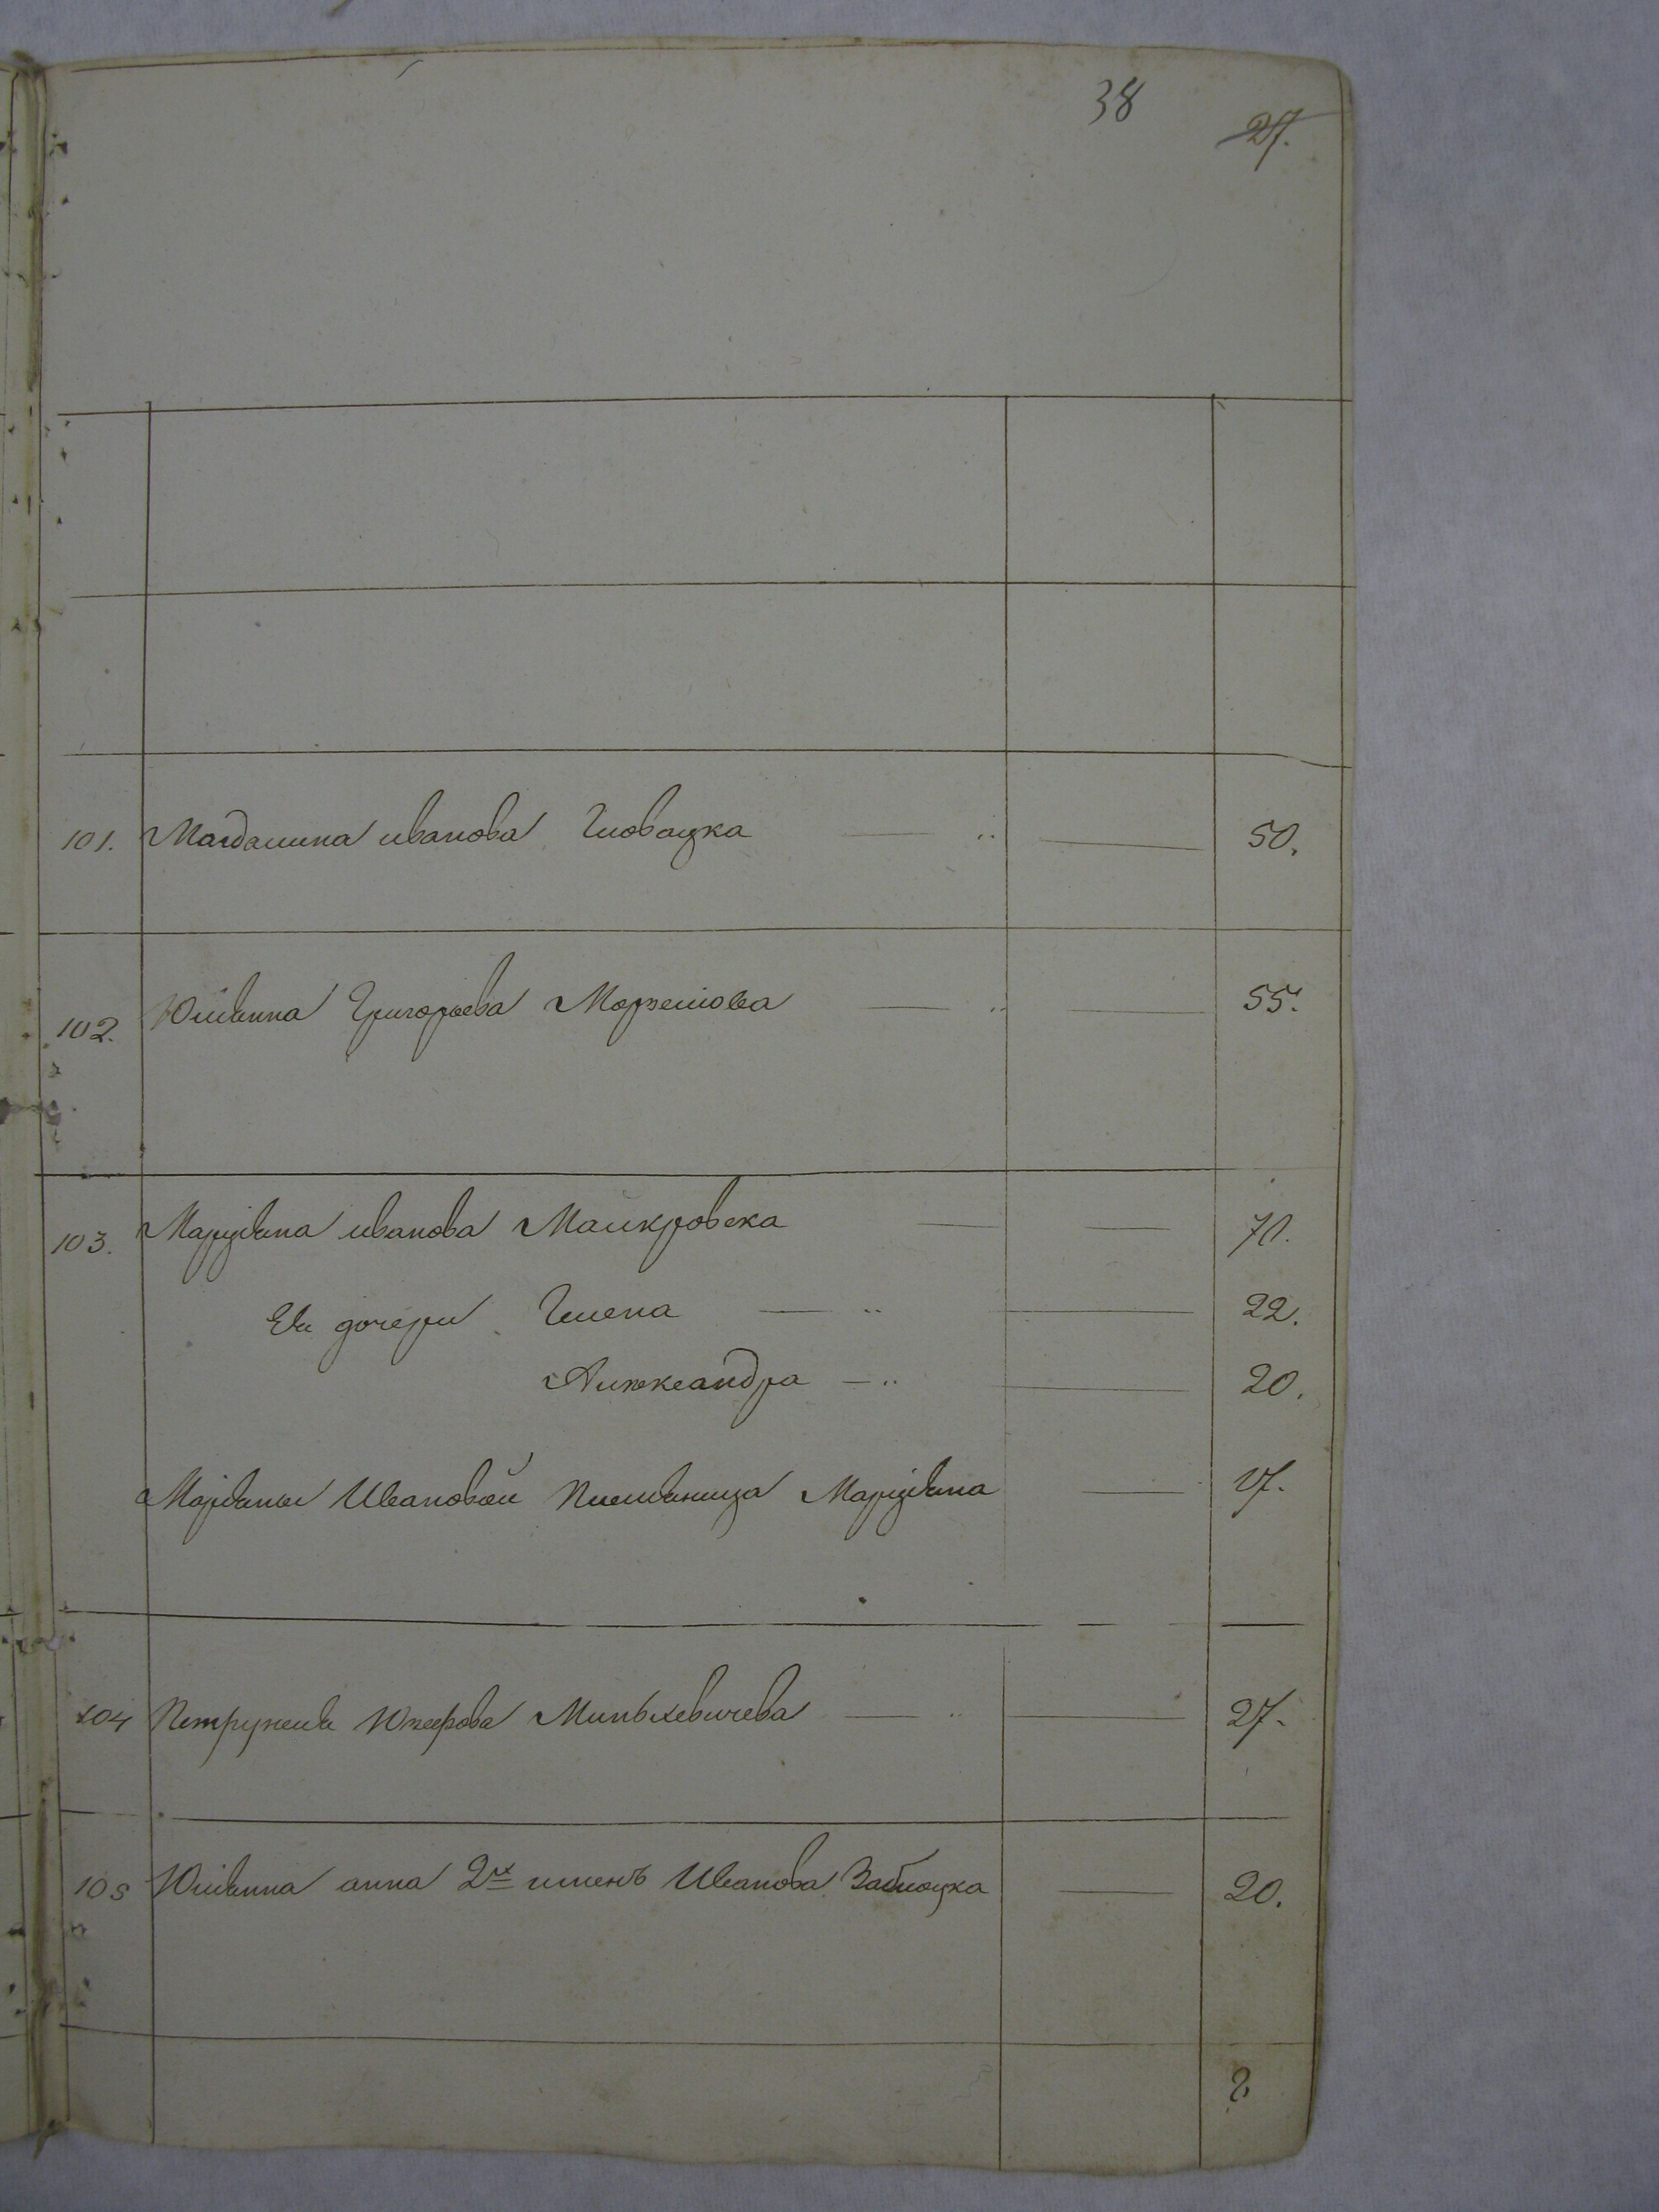 38
27.
101. Магдалина иванова Гловацка 50.
102. Юлiянна Григорьева Моржелова 55.
103. Марцiяна иванова Маикровска 70.
Ея дочери Гелена 22.
Александра 20.
Марiяны Ивановой Племяница Марцiяна 17.
104 Петрунеля Юзефова Минькевичева 27.
105 Юлiянна анна 2х именъ Иванова Заблоцка 20.
8